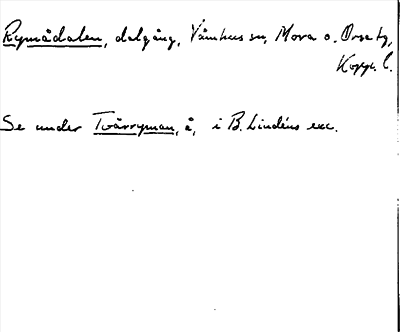 Rymådalen, dalgång, Våmhus sn, Mora o. Orsa tg,
Kopp. l.
Se under Tvärryman, å, i B. Lindéns exc.